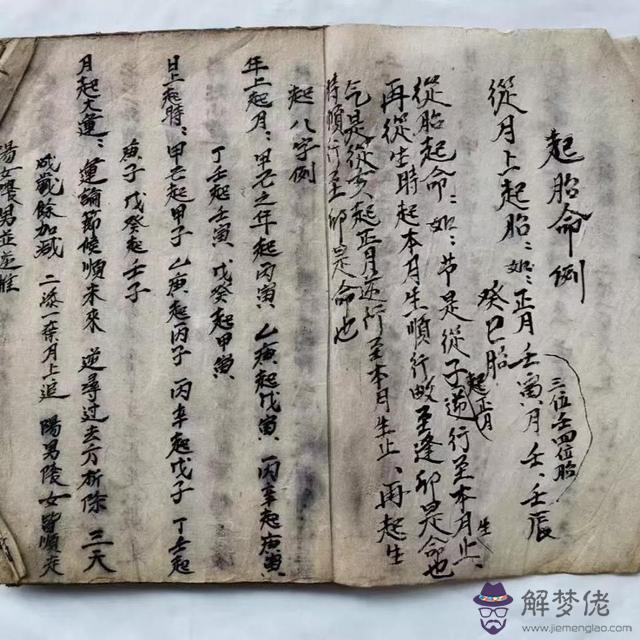 起胎命例
從月上起胎：如：正月壬寅月壬、壬辰
三位壬四位胎
癸巳胎
從胎起命：如：节是從子逆行至本月止、
起正月
生
再從生時起本月生順行數至逢卯是命也
气是從亥起正月逆行至本月生止、再起生
時順行至卯是命也
起八字例
年上起月：甲己之年起丙寅 乙庚起戊寅 丙辛起庚寅
丁壬起壬寅 戊癸起甲寅
日上起時：甲己起甲子 乙庚起丙子 丙辛起戊子 丁壬起
庚子 戊癸起壬子
月起大運：運論節候順未來 逆尋过去方析除 三天
成歲餘加减 二添一棄月上追 陽男陰女皆順走
解梦佬
www.jiemenglao.com